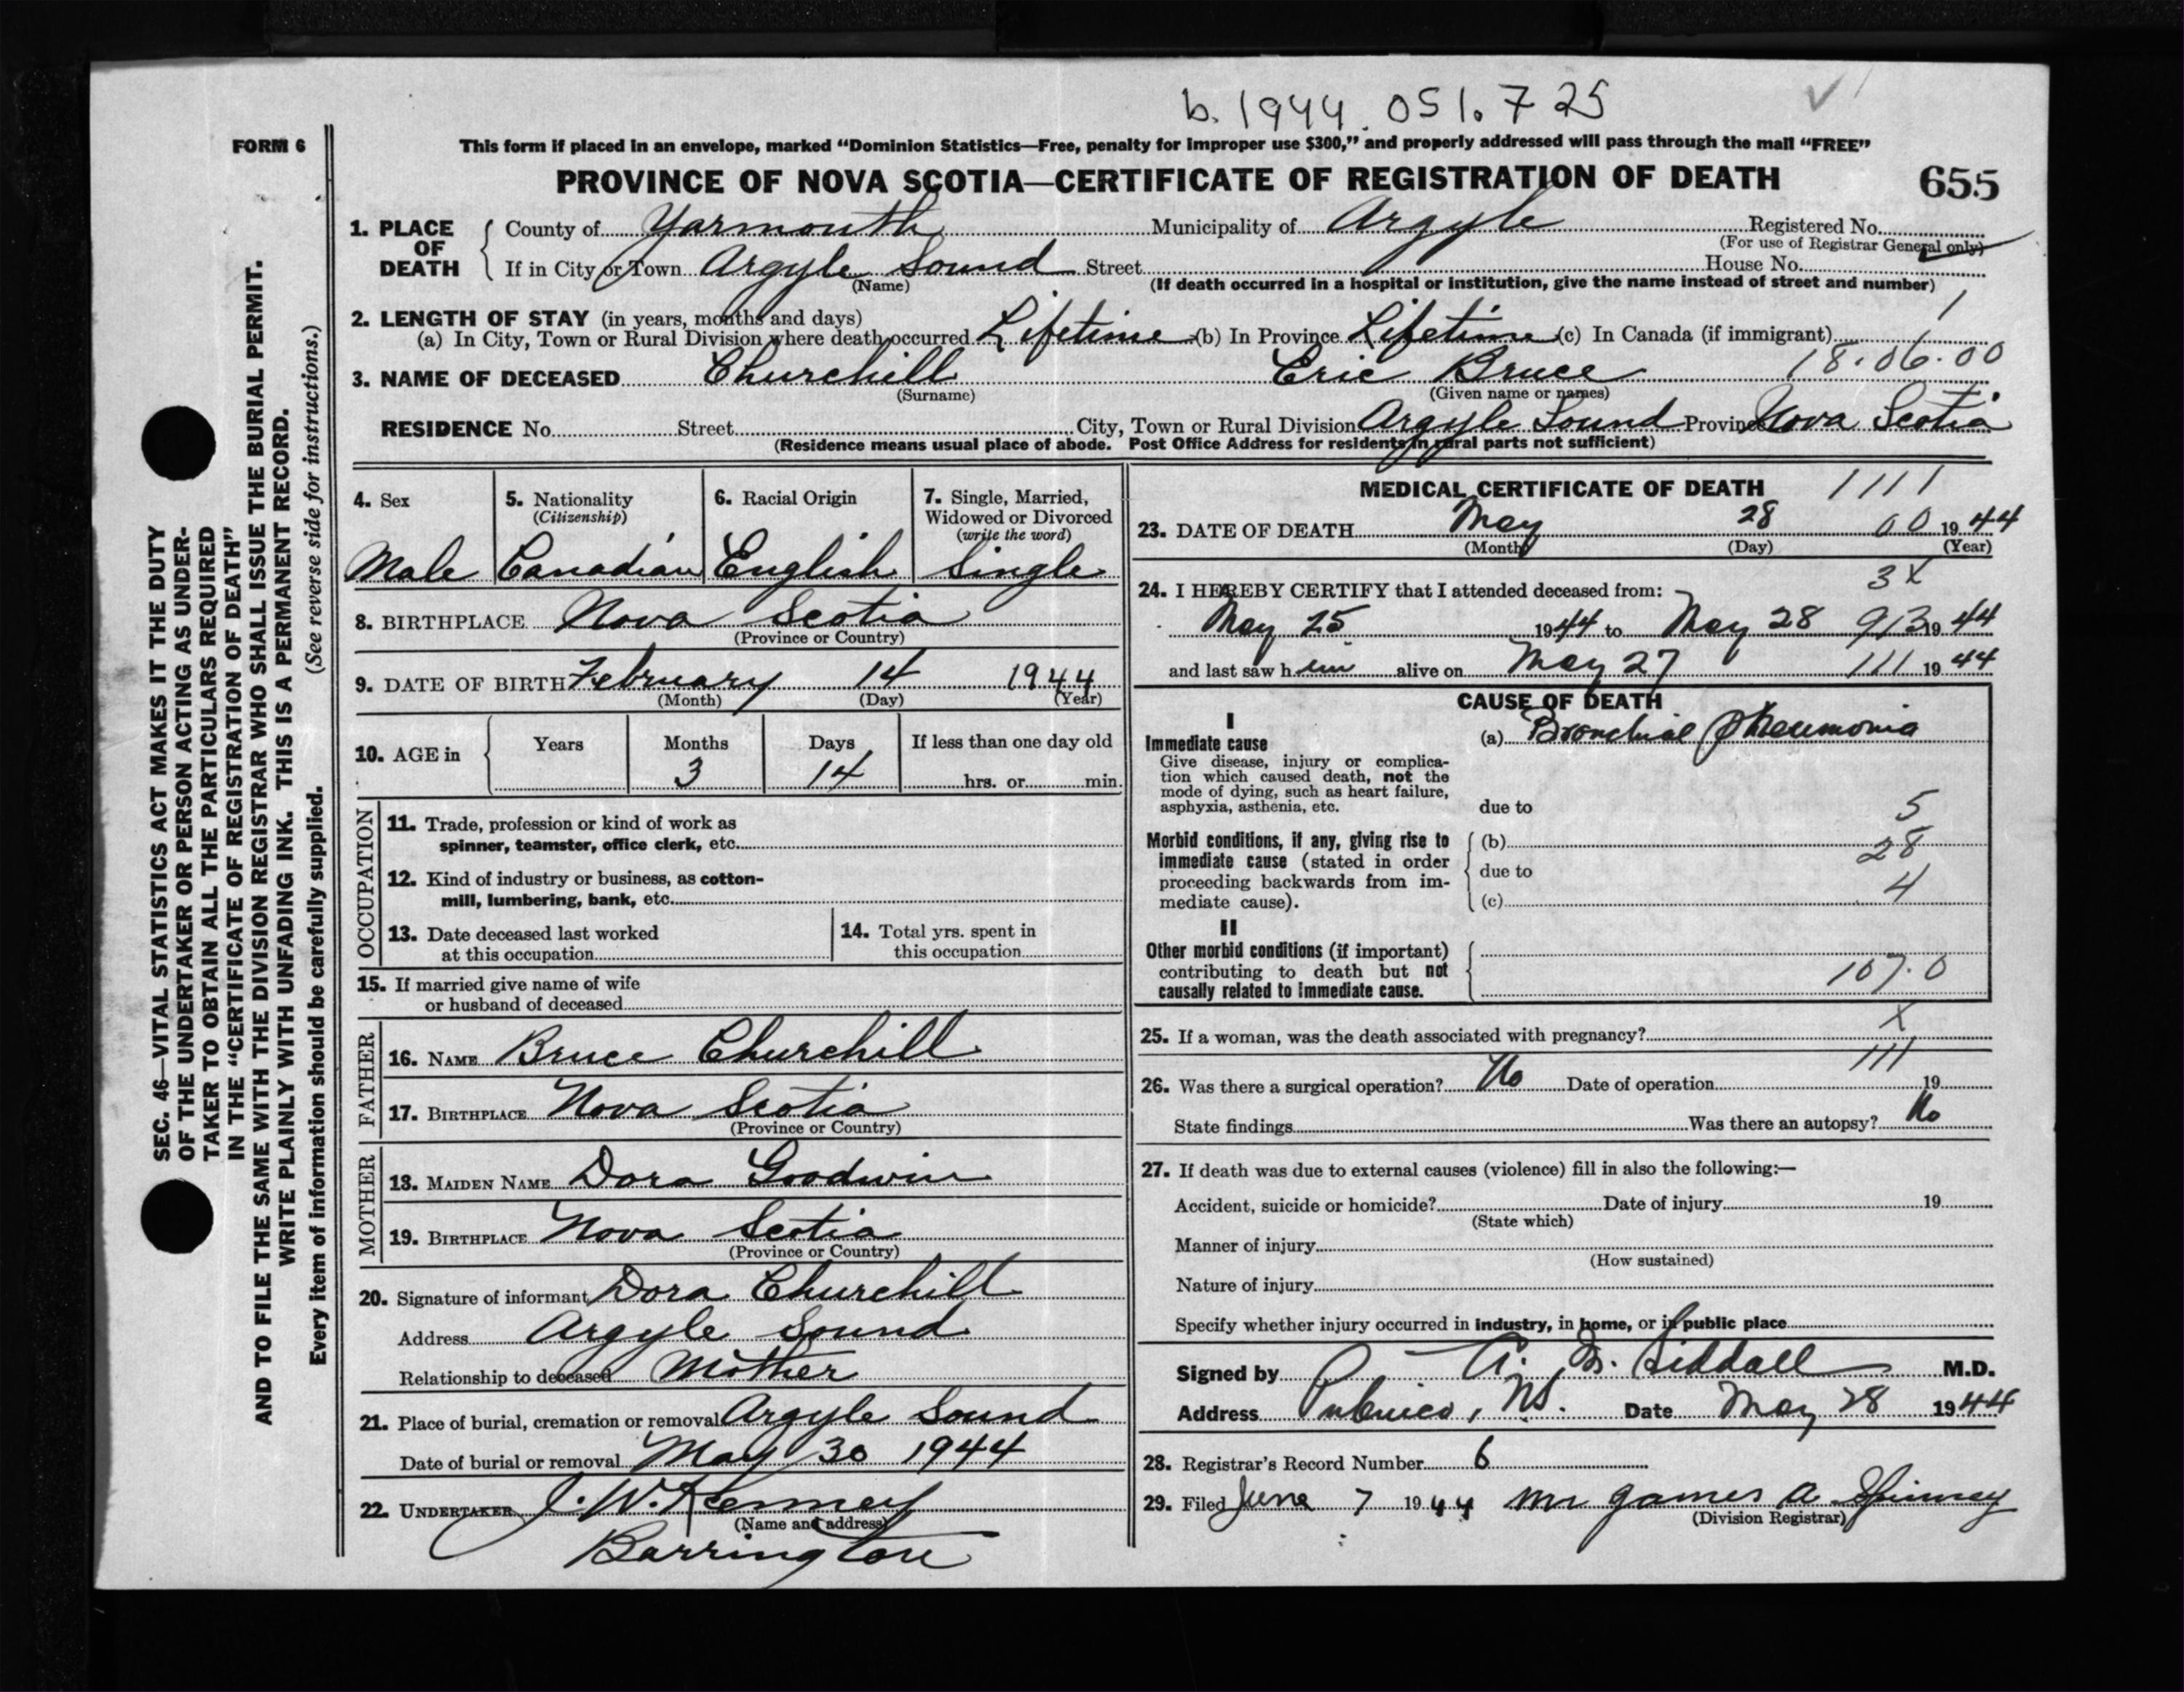 b. 1944. 051.725
FORM 6
This form if placed in an envelope, marked “Dominion Statistics—Free, penalty for improper use $300,” and properly addressed will pass through the mail “FREE”
PROVINCE OF NOVA SCOTIA—CERTIFICATE OF REGISTRATION OF DEATH
655
1. PLACE OF DEATH
County of Yarmouth Municipality of Argyle Registered No.
(For use of Registrar General only)
If in City or Town Argyle Sound Street House No.
(Name) (If death occurred in a hospital or institution, give the name instead of street and number)
2. LENGTH OF STAY (in years, months and days) 1
(a) In City, Town or Rural Division where death occurred Lifetime (b) In Province Lifetime (c) In Canada (if immigrant)
18.06.00
3. NAME OF DECEASED Churchill Eric Bruce
(Surname) (Given name or names)
RESIDENCE No. Street City, Town or Rural Division Argyle Sound Province Nova Scotia
(Residence means usual place of abode. Post Office Address for residents in rural parts not sufficient)
4. Sex
Male
5. Nationality
(Citizenship)
Canadian
6. Racial Origin
English
7. Single, Married,
Widowed or Divorced
(write the word)
Single
8. BIRTHPLACE Nova Scotia
(Province or Country)
9. DATE OF BIRTH February 14 1944
(Month) (Day) (Year)
10. AGE in Years Months Days If less than one day old
3 14 hrs. or min.
OCCUPATION
11. Trade, profession or kind of work as
spinner, teamster, office clerk, etc.
12. Kind of industry or business, as cotton-
mill, lumbering, bank, etc.
13. Date deceased last worked
at this occupation
14. Total yrs. spent in
this occupation
15. If married give name of wife
or husband of deceased
FATHER
16. NAME Bruce Churchill
17. BIRTHPLACE Nova Scotia
(Province or Country)
MOTHER
18. MAIDEN NAME Dora Goodwin
19. BIRTHPLACE Nova Scotia
(Province or Country)
20. Signature of informant Dora Churchill
Address Argyle Sound
Relationship to deceased Mother
21. Place of burial, cremation or removal Argyle Sound
Date of burial or removal May 30 1944
22. UNDERTAKER J. W. Kenney
(Name and address)
Barrington
MEDICAL CERTIFICATE OF DEATH 1111
23. DATE OF DEATH May 28 00 1944
(Month) (Day) (Year)
3X
24. I HEREBY CERTIFY that I attended deceased from:
May 25 1944 to May 28 913 1944
and last saw him alive on May 27 111 1944
CAUSE OF DEATH
I
Immediate cause
Give disease, injury or complica-
tion which caused death, not the
mode of dying, such as heart failure,
asphyxia, asthenia, etc.
(a) Bronchial Pneumonia
due to
5
Morbid conditions, if any, giving rise to
immediate cause (stated in order
proceeding backwards from im-
mediate cause).
(b)
28
due to
4
(c)
II
Other morbid conditions (if important)
contributing to death but not
causally related to immediate cause.
107.0
X
25. If a woman, was the death associated with pregnancy?
111
26. Was there a surgical operation? No Date of operation 19
State findings Was there an autopsy? No
27. If death was due to external causes (violence) fill in also the following:—
Accident, suicide or homicide? Date of injury 19
(State which)
Manner of injury
(How sustained)
Nature of injury
Specify whether injury occurred in industry, in home, or in public place
Signed by A. Siddall M.D.
Address Pubnico, NS. Date May 28 1944
28. Registrar's Record Number 6
29. Filed June 7 1944 Mr James A Spinney
(Division Registrar)
SEC. 46—VITAL STATISTICS ACT MAKES IT THE DUTY
OF THE UNDERTAKER OR PERSON ACTING AS UNDER-
TAKER TO OBTAIN ALL THE PARTICULARS REQUIRED
IN THE “CERTIFICATE OF REGISTRATION OF DEATH”
AND TO FILE THE SAME WITH THE DIVISION REGISTRAR WHO SHALL ISSUE THE BURIAL PERMIT.
WRITE PLAINLY WITH UNFADING INK. THIS IS A PERMANENT RECORD.
Every item of information should be carefully supplied. (See reverse side for instructions.)